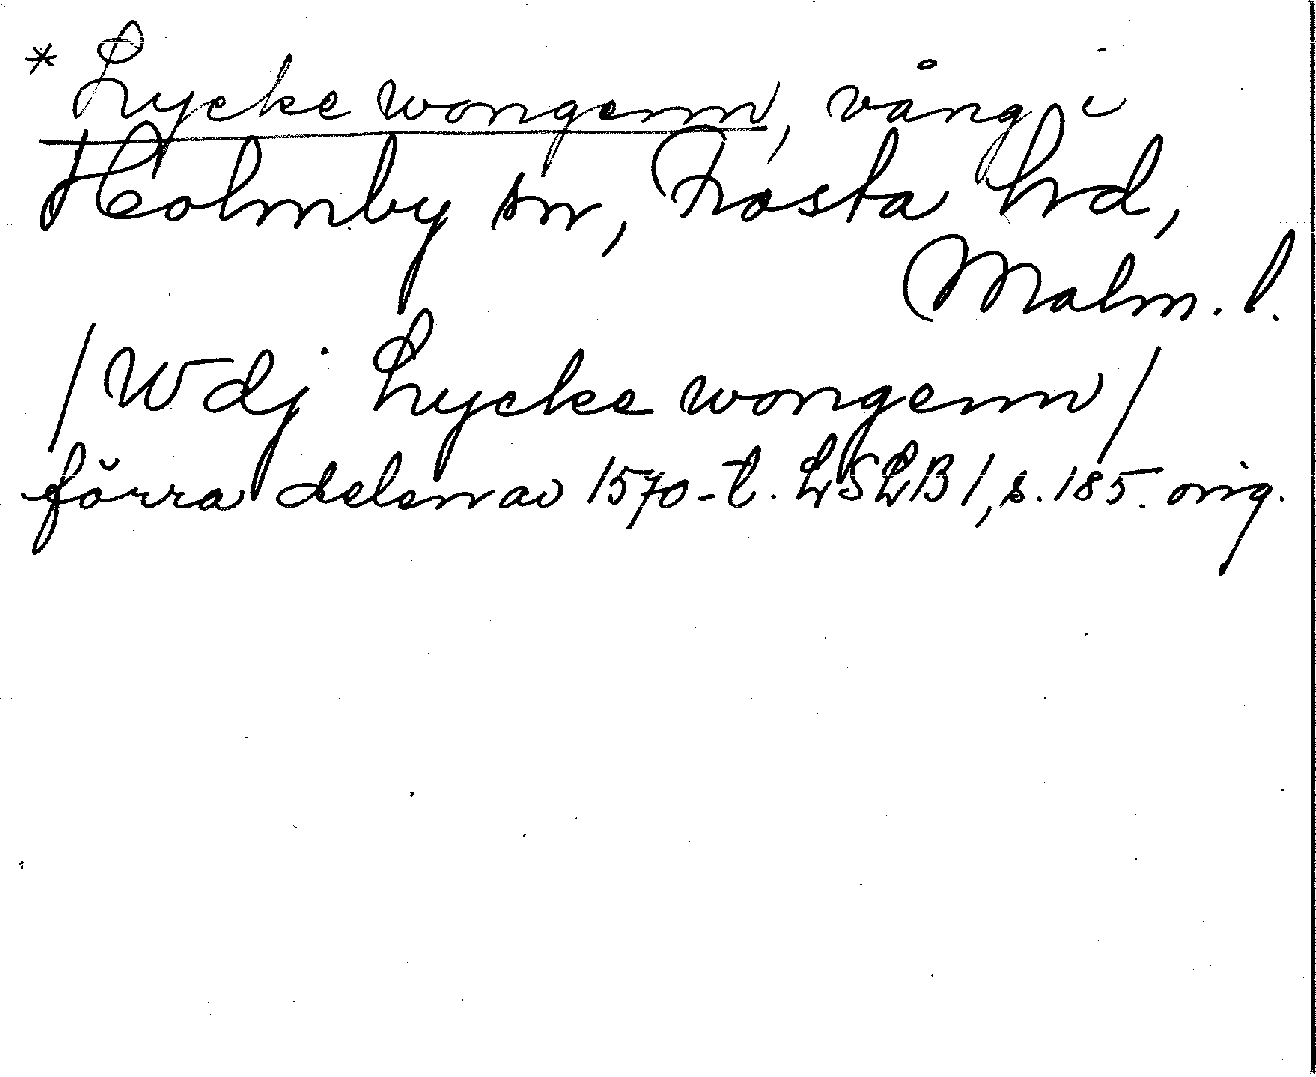 * Lycke wongenn, vång i
Holmby sn, Frosta hd,
Malm. l.
/Wdj Lycke wongenn/
förra delen av 1570-t. LSLB 1, s. 185. orig.